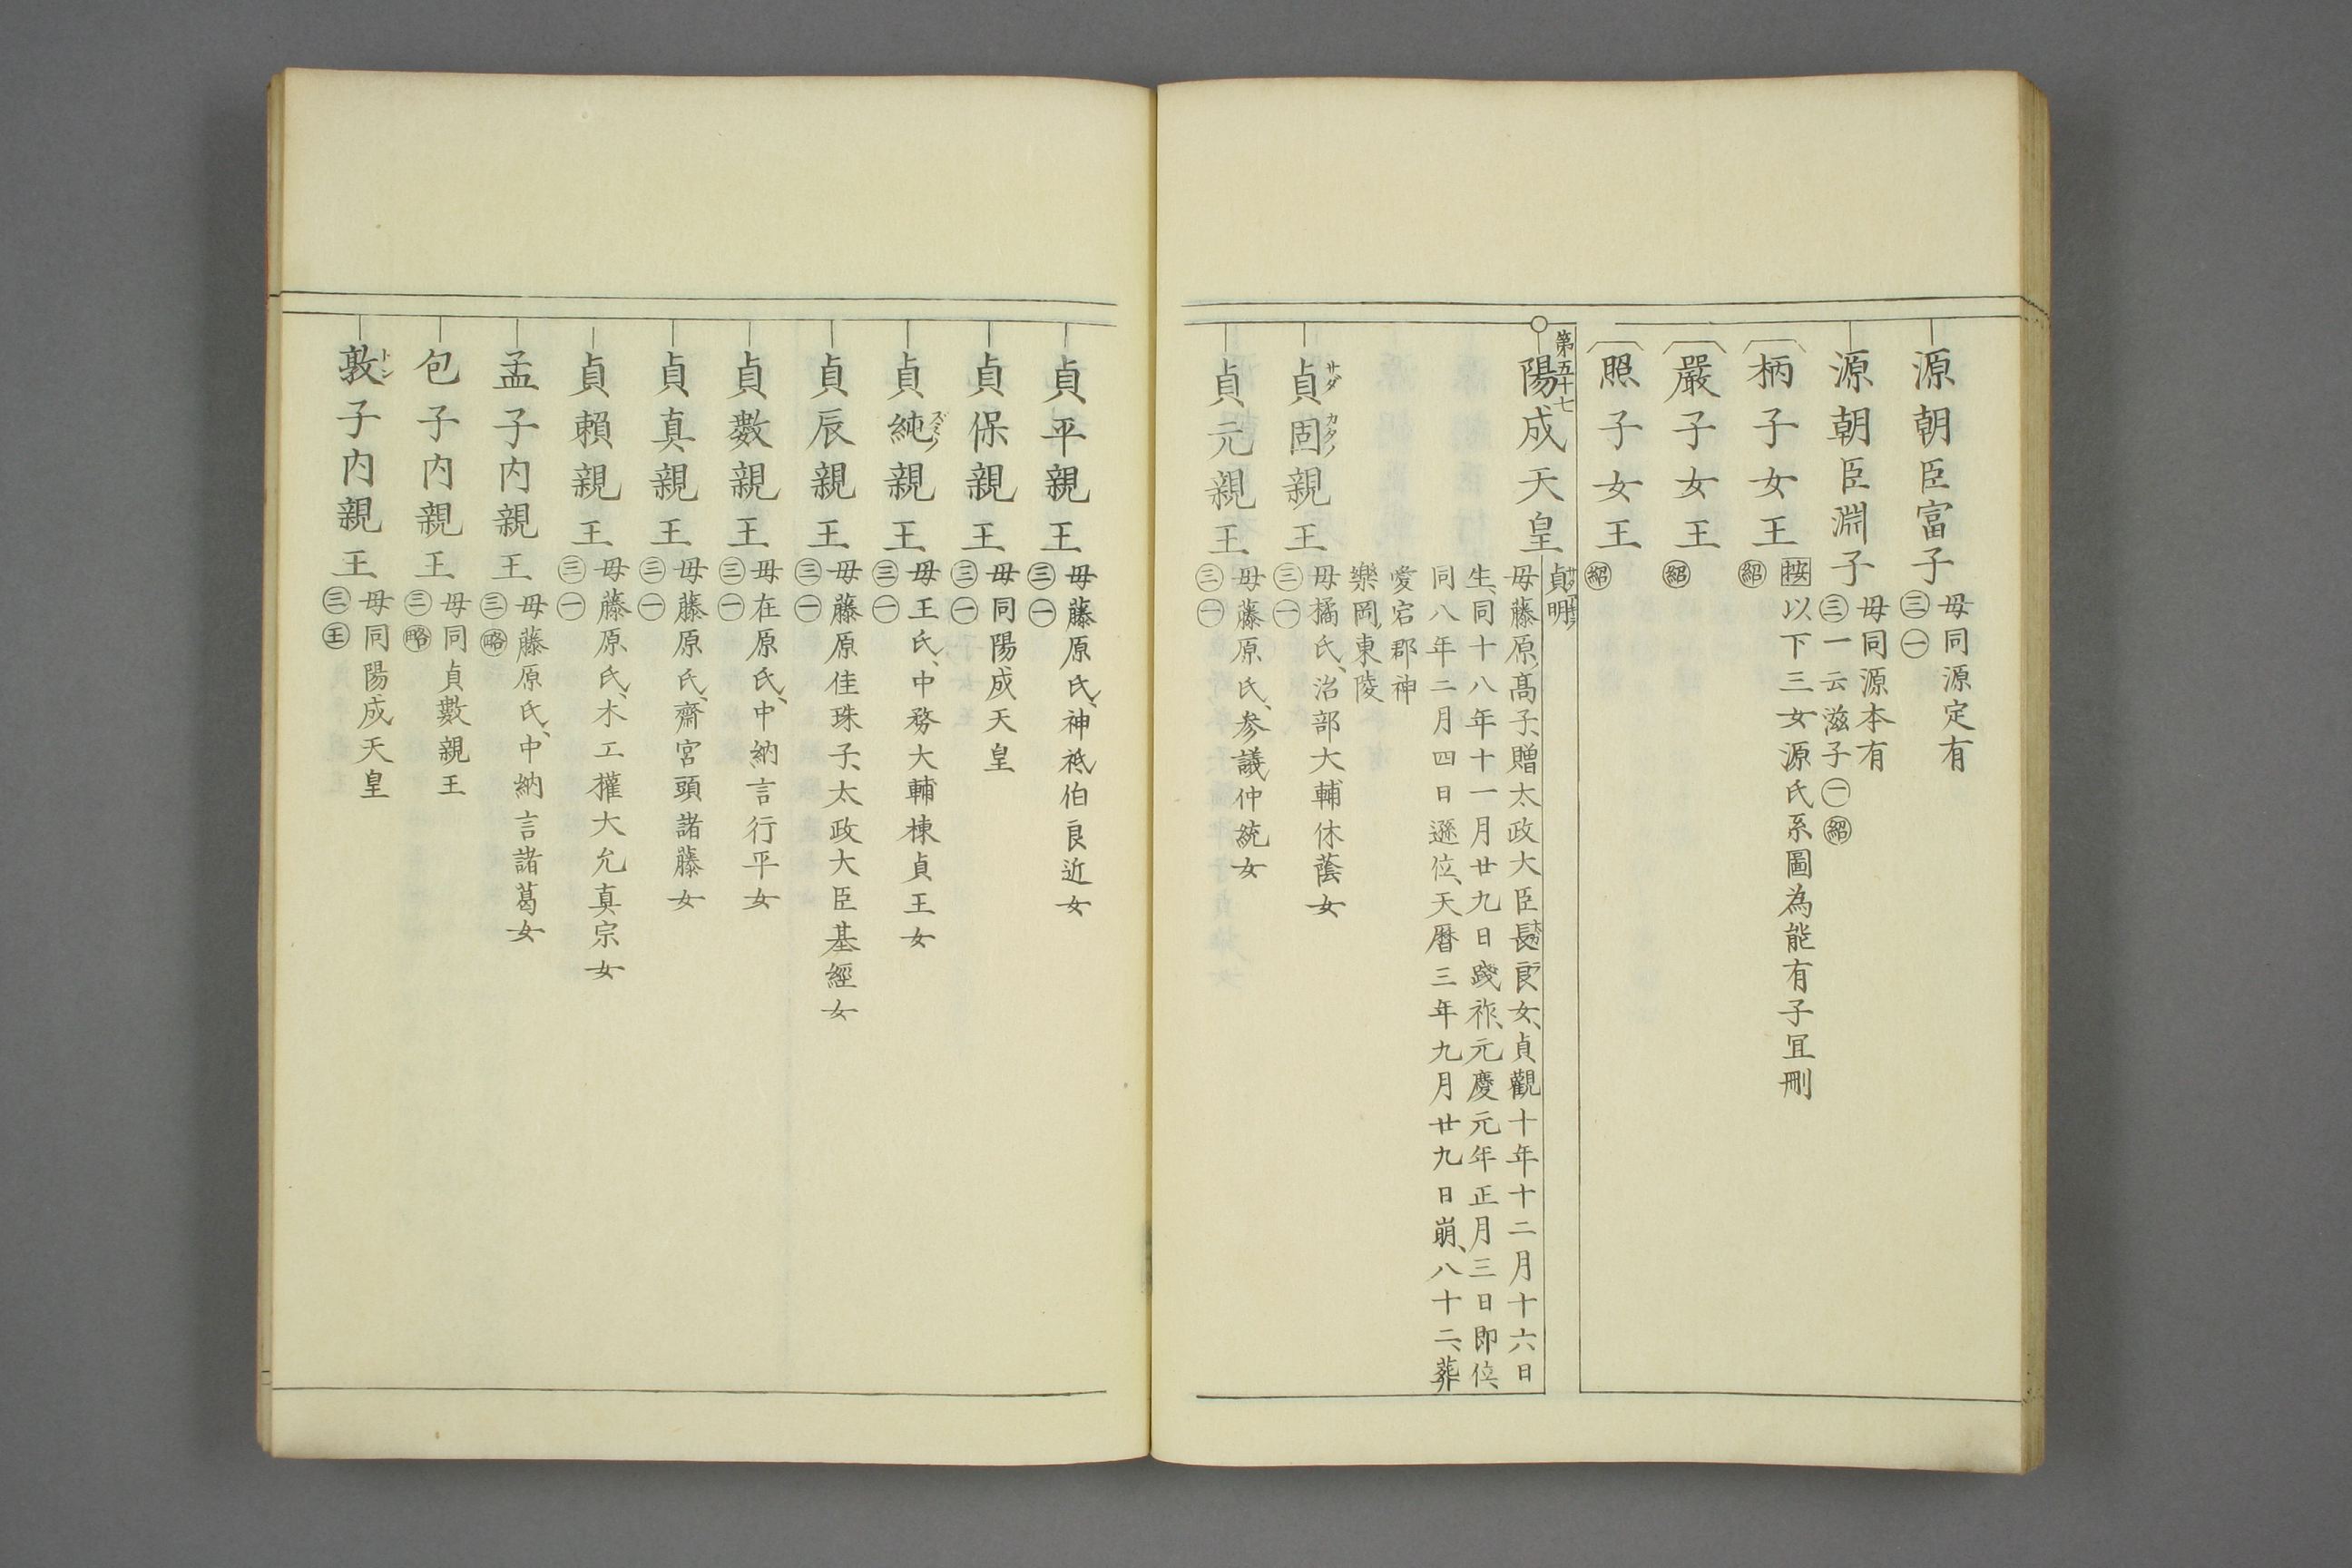 源朝臣富子
母同源定有
㊂㊀
源朝臣淵子
母同源本有
㊂一云滋子㊀㊋紹
柄子女王
按以下三女源氏系圖為能有子宜刪
紹
嚴子女王
紹
照子女王
紹
第五十七
陽成天皇
貞明
母藤原高子、贈太政大臣長良女、貞觀十年十二月十六日
生、同十八年十一月廿九日踐祚、元慶元年正月三日即位、
同八年二月四日遜位、天曆三年九月廿九日崩、八十二、葬
愛宕郡神
樂岡東陵
貞固親王
サダ カタノ
母橘氏、治部大輔休蔭女
㊂㊀
貞元親王
母藤原氏、参議仲統女
㊂㊀
貞平親王
母藤原氏、神祇伯良近女
㊂㊀
貞保親王
母同陽成天皇
㊂㊀
貞純親王
ズミノ
母王氏、中務大輔棟貞王女
㊂㊀
貞辰親王
母藤原佳珠子、太政大臣基經女
㊂㊀
貞數親王
母在原氏、中納言行平女
㊂㊀
貞真親王
母藤原氏、齋宮頭諸藤女
㊂㊀
貞賴親王
母藤原氏、木工權大允真宗女
㊂㊀
孟子内親王
母藤原氏、中納言諸葛女
㊂略
包子内親王
母同貞數親王
㊂略
敦子内親王
トン
母同陽成天皇
㊂王